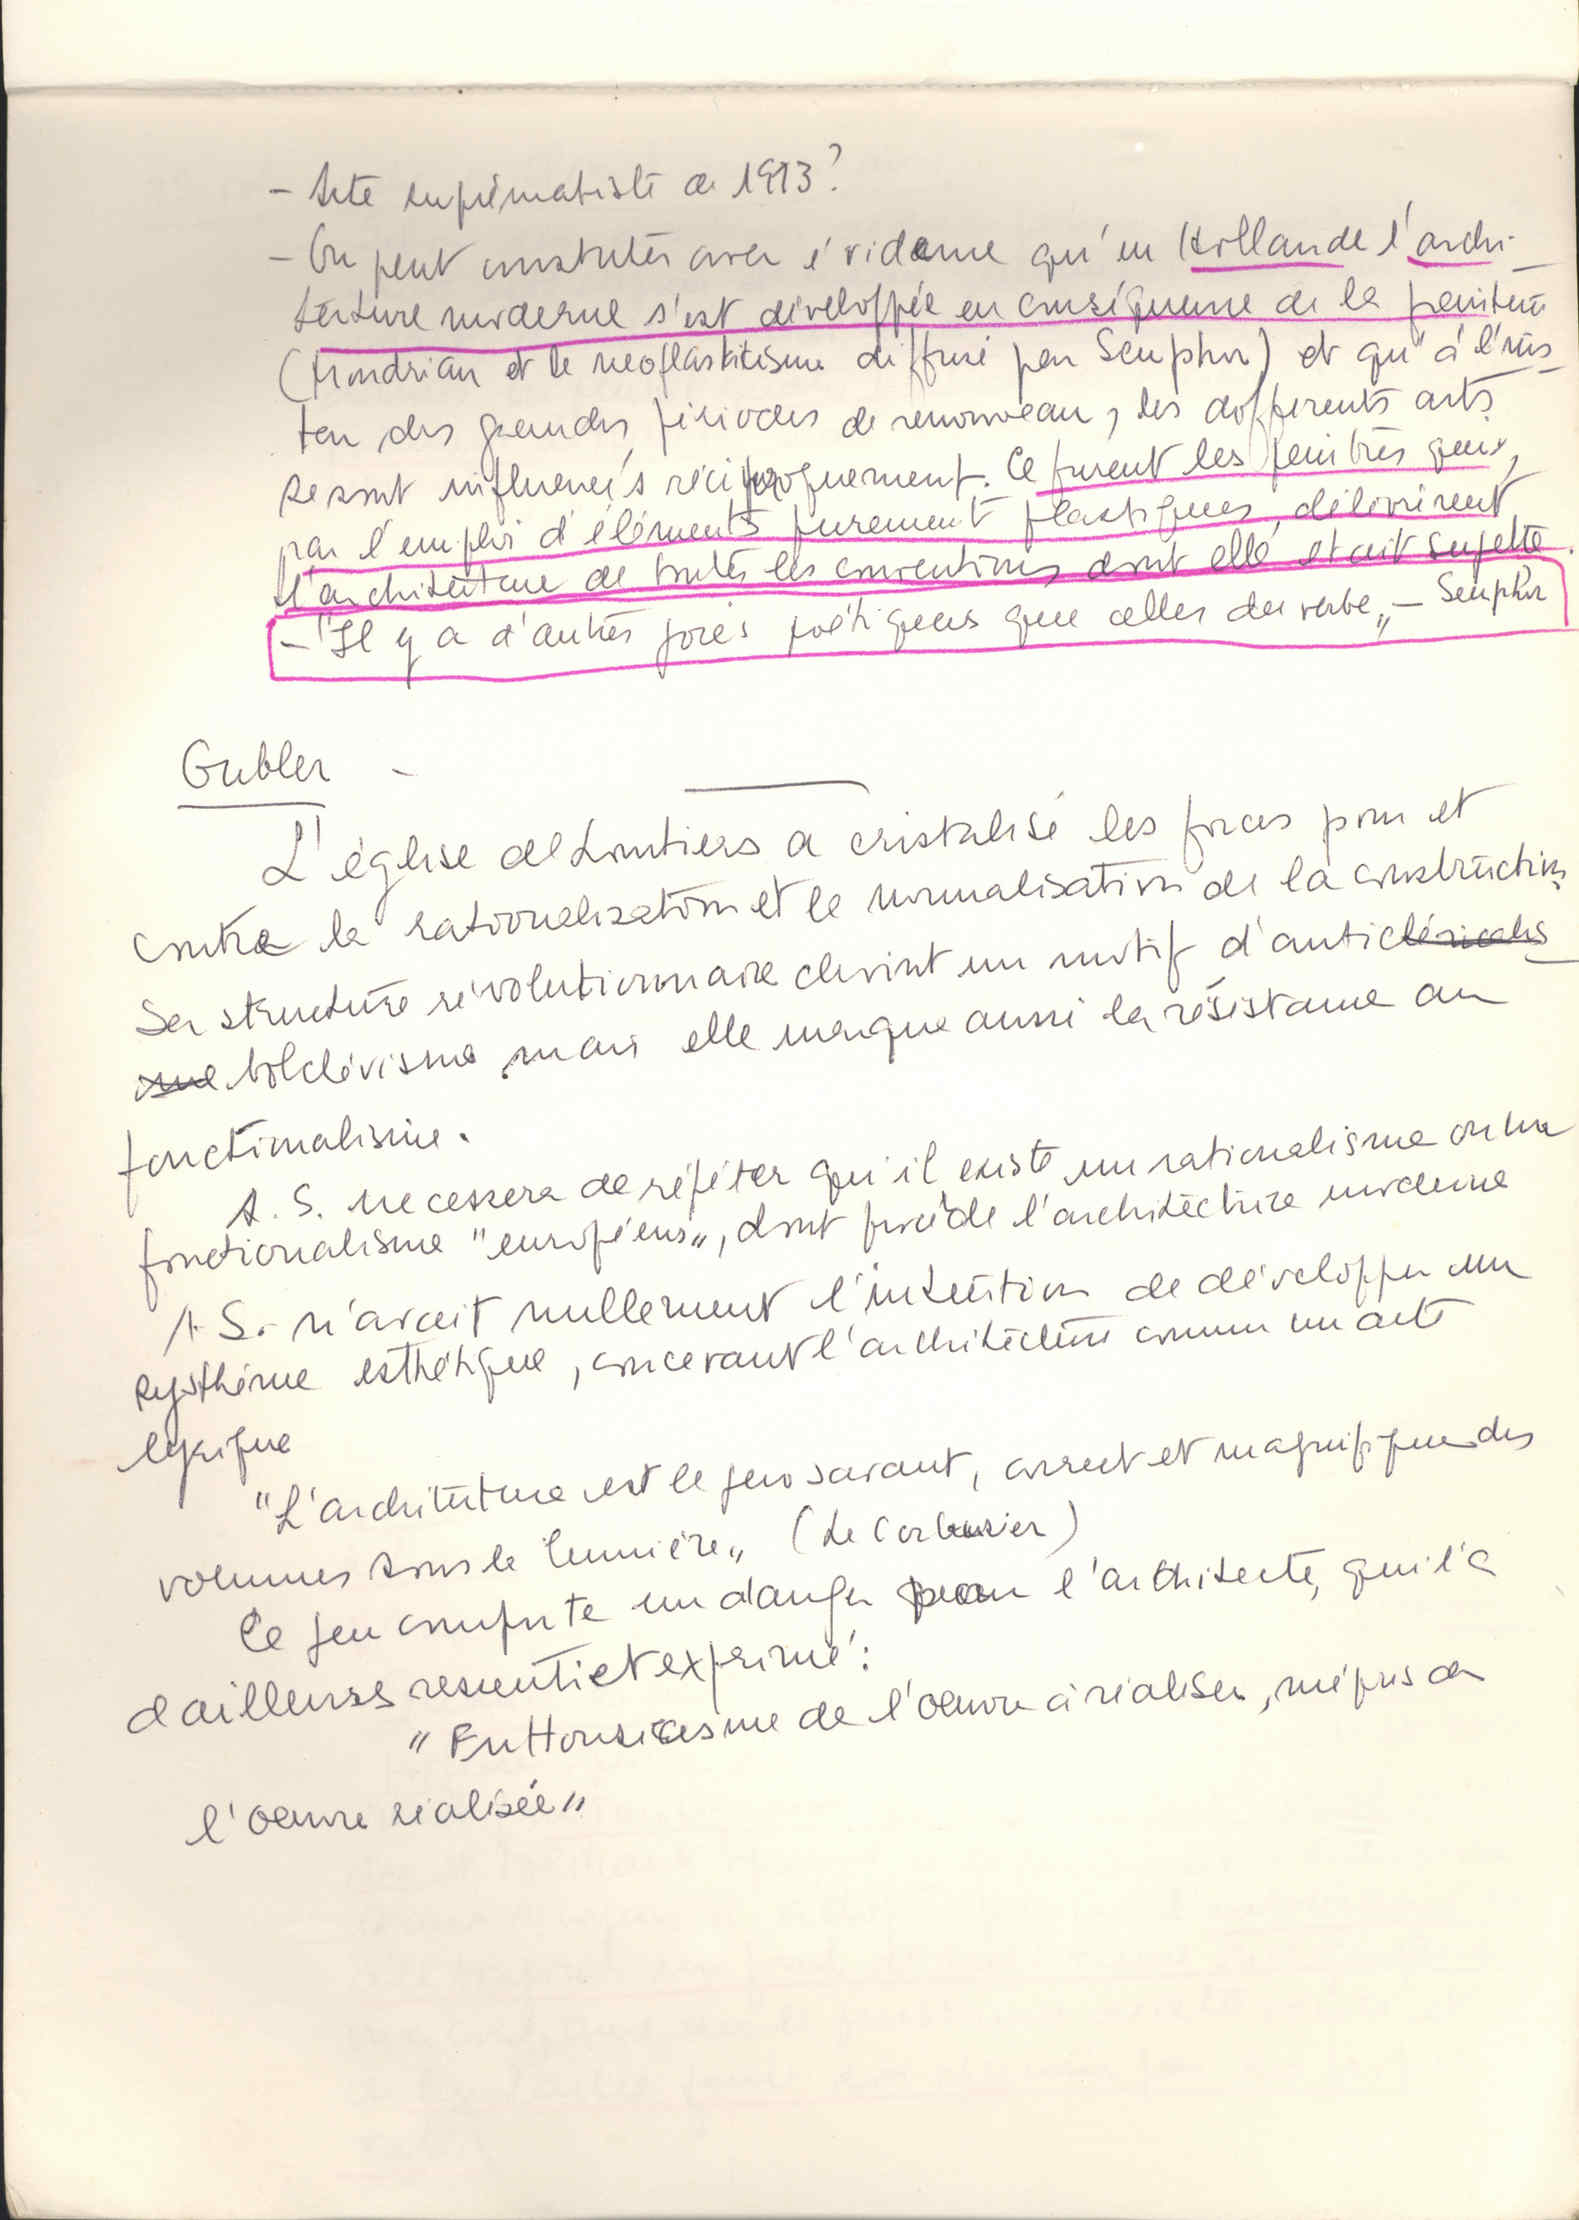 - Acte suprématiste de 1913?
- On peut constater avec évidence qu'en Hollande l'archi-
tecture moderne s'est développée en conséquence de la peinture
(Mondrian et le neoplasticisme diffusé par Seuphor) et qu'à l'ins-
tar des grandes périodes de renouveau, les différents arts
se sont influencés réciproquement. Ce furent les peintres qui,
par l'emploi d'éléments purement plastiques, délivrèrent
l'architecture de toutes les conventions dont elle était sujette.
- "Il y a d'autres joies poétiques que celles du verbe„ - Seuphor
Gubler -
L'église de Lourtiers a cristalisé les forces pour et
contre la rationalisation et la normalisation de la construction.
Sa structure révolutionnaire devint un motif d'anticléricalis
me bolchévisme mais elle marque aussi la résistance au
fonctionalisme.
A. S. ne cessera de répéter qu'il existe un rationalisme ou un
fonctionalisme "européens„, dont procède l'architecture moderne
A S. n'avait nullement l'intention de développer un
système esthétique, concevant l'architecture comme un acte
lyrique
"L'architecture est le jeu savant, correct et magnifique des
volumes sous la lumière„ (Le Corbusier)
Ce jeu comporte un danger pour l'architecte, qui l'a
d'ailleurs ressenti et exprimé:
"Enthousiasme de l'oeuvre à réaliser, mépris de
l'oeuvre réalisée„